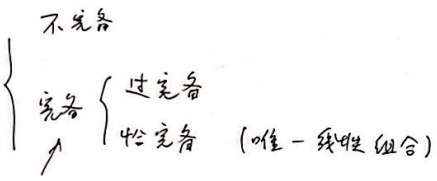 不完备
完备
过完备
恰完备 (唯一线性组合)